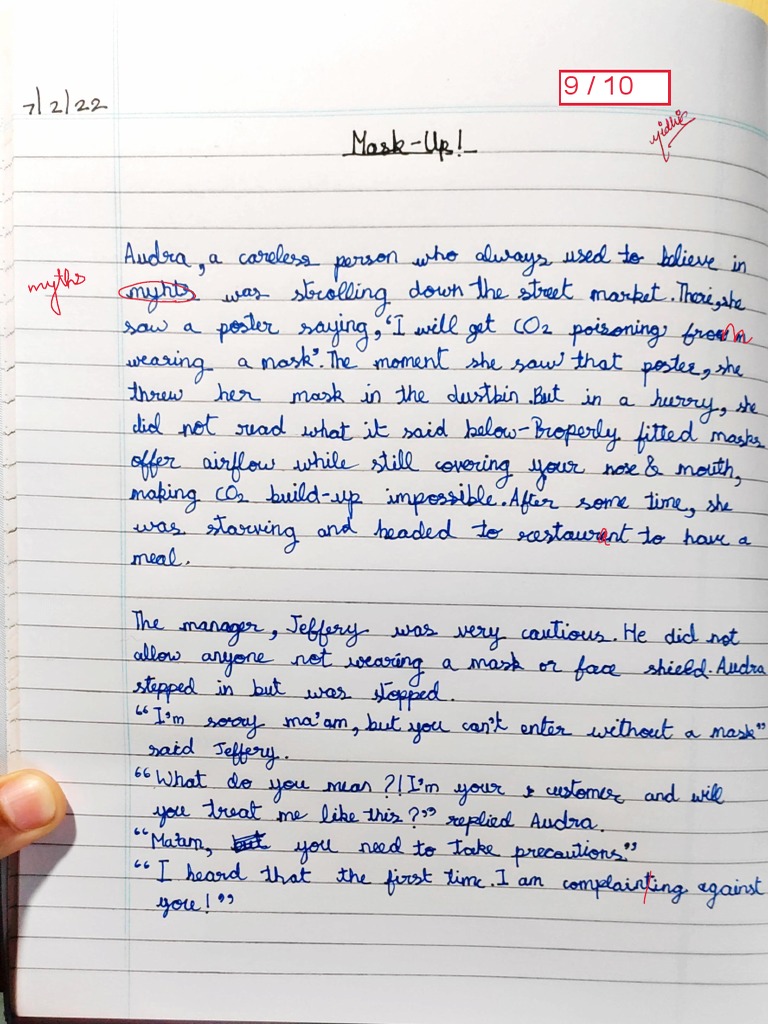 9 / 10
7/2/22
vidhi
Mask-Up!
Audra, a careless person who always used to believe in
myths
myhts was strolling down the street market. There, she
saw a poster saying, 'I will get CO2 poisoning from
wearing a mask'. The moment she saw that poster, she
threw her mask in the dustbin. But in a hurry, she
did not read what it said below-Properly fitted masks
offer airflow while still covering your nose & mouth,
making CO2 build-up impossible. After some time, she
was starving and headed to restaurant to have a
meal.
The manager, Jeffery was very cautious. He did not
allow anyone not wearing a mask or face shield. Audra
stepped in but was stopped.
“I'm sorry ma'am, but you can't enter without a mask”
said Jeffery.
“What do you mean?! I'm your customer and will
you treat me like this?” replied Audra.
“Ma'am, but you need to take precautions.”
“I heard that the first time. I am complainting against
you!”